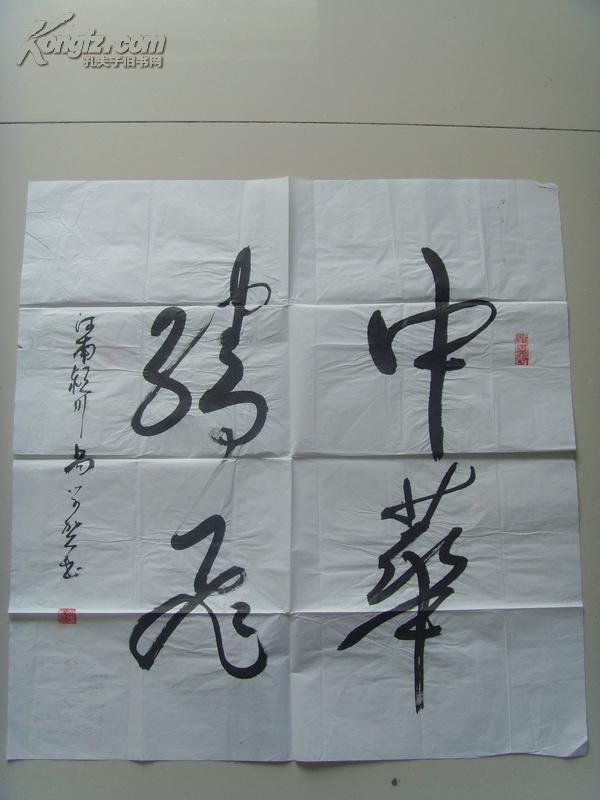 Kongfz.com
孔夫子旧书网
中華
騰飛
颍川 尚 书